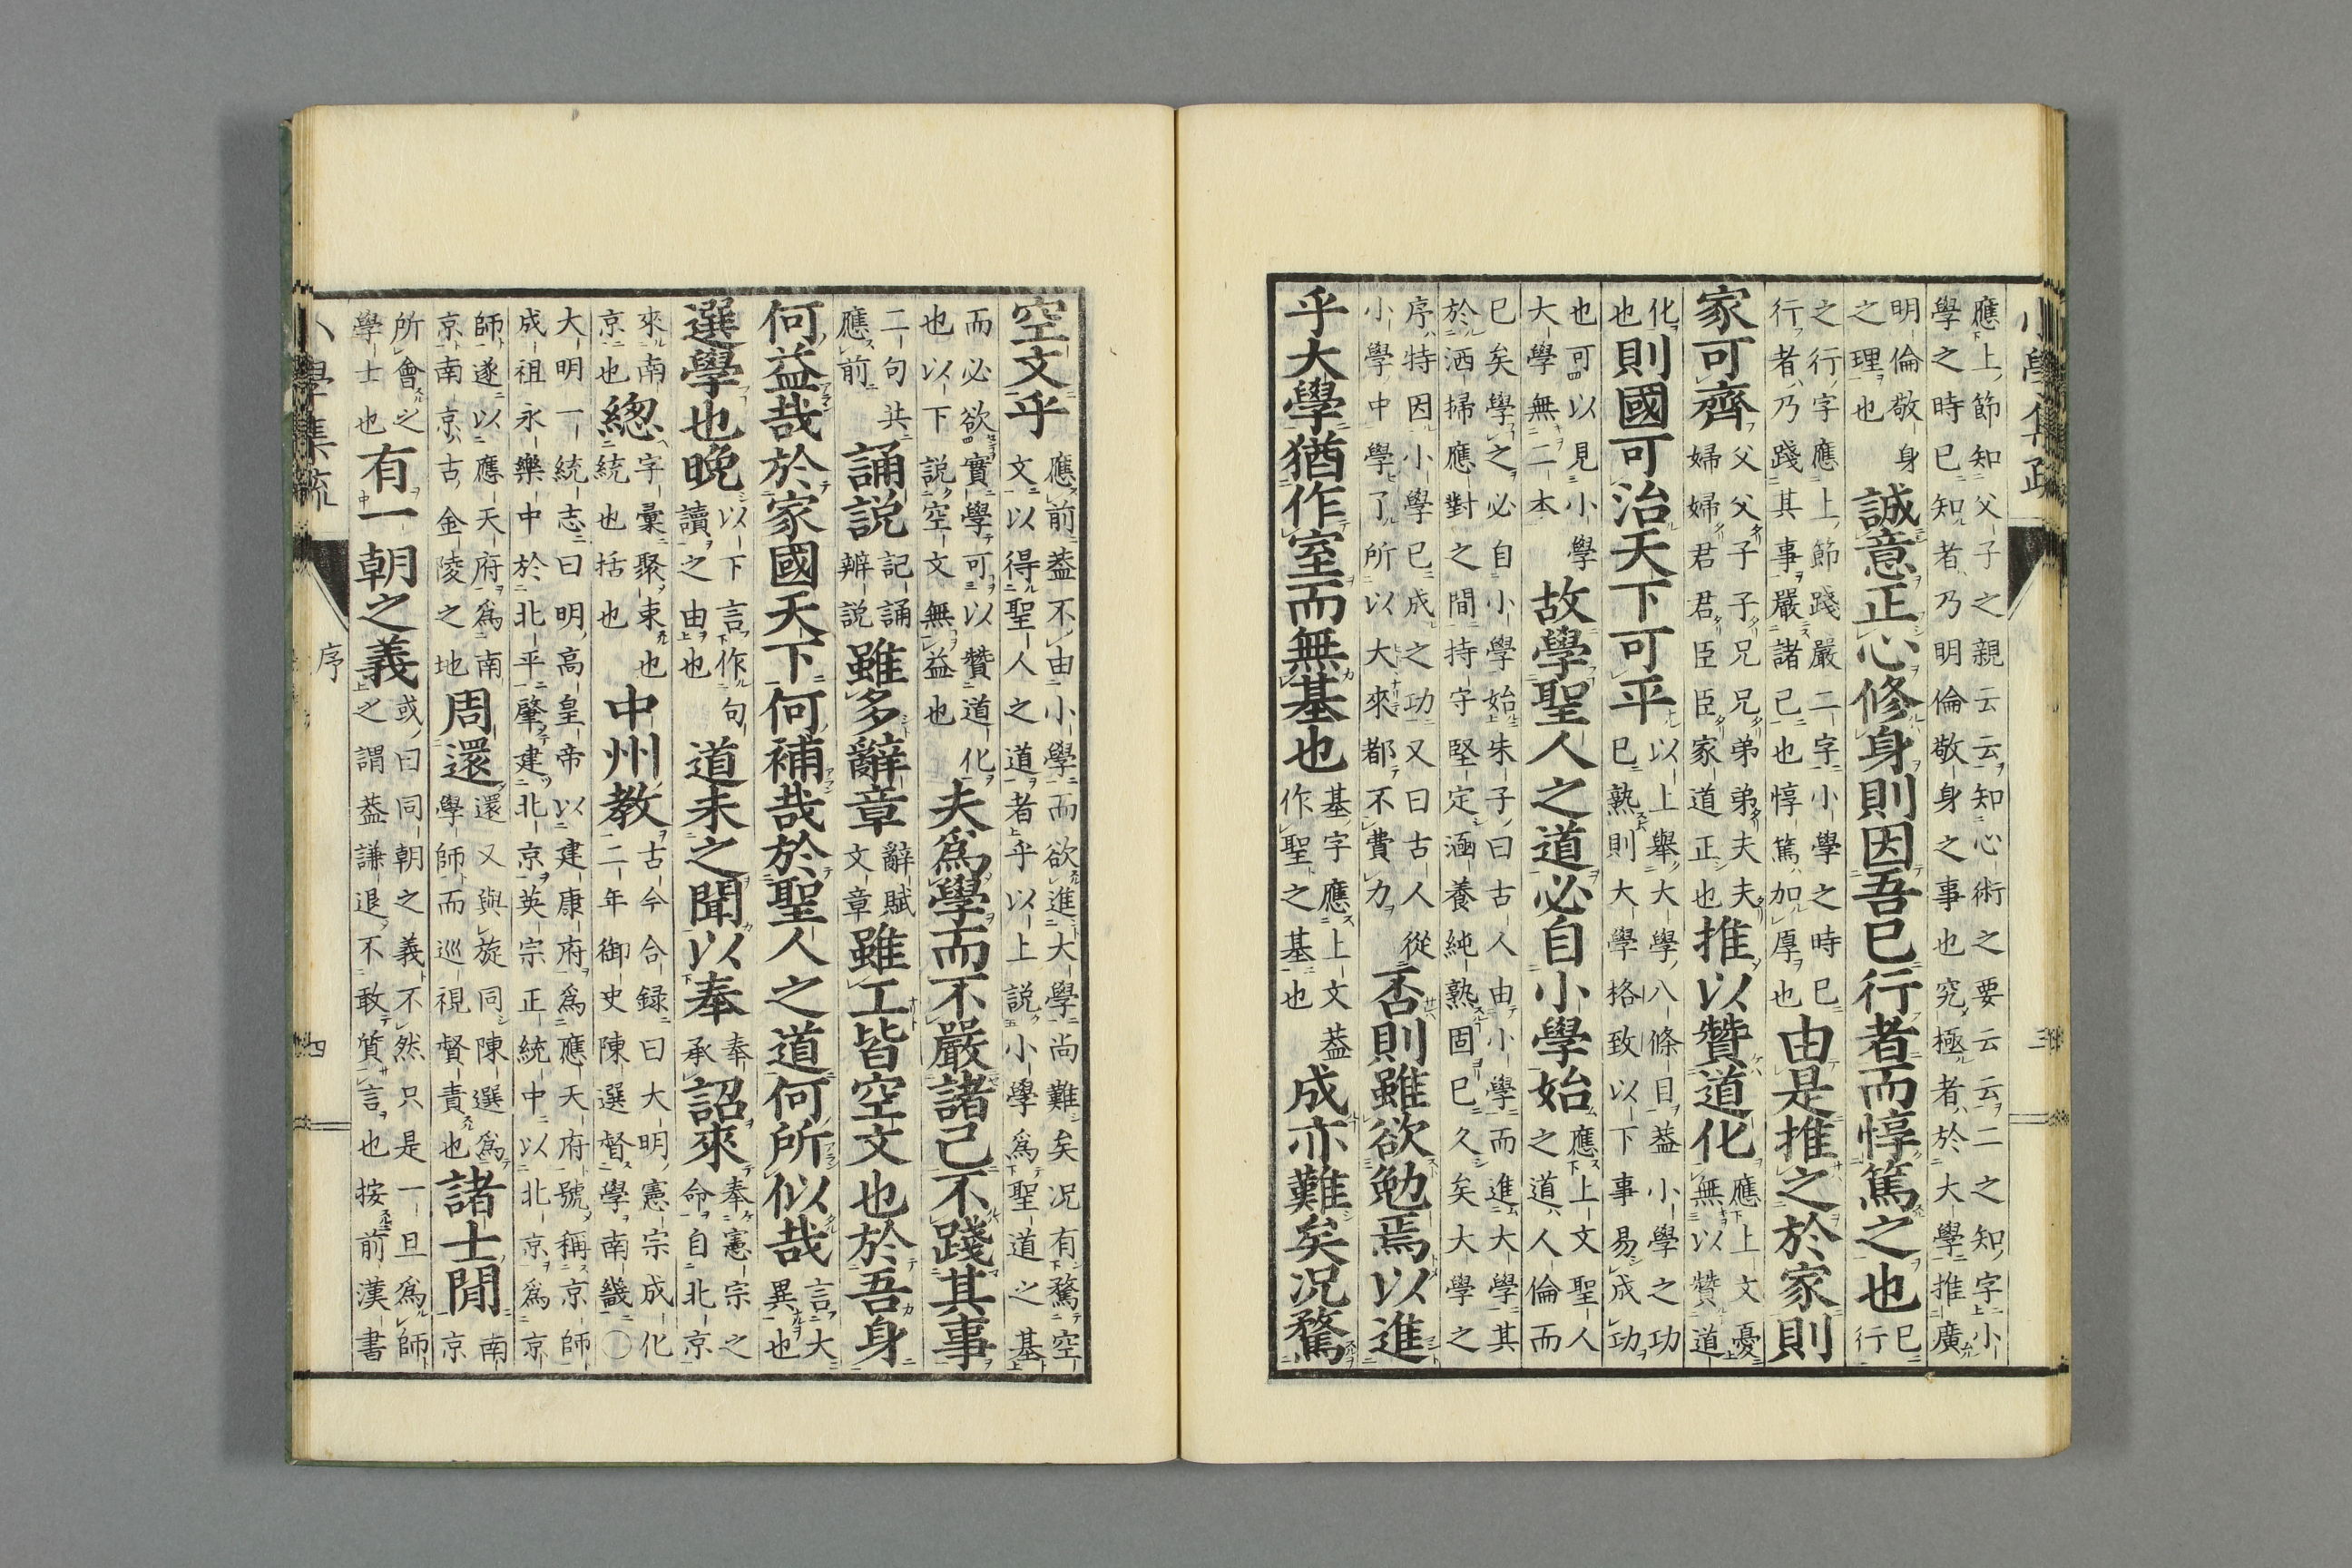 小學集疏
三
應上節知父子之親云云知心術之要云云二之知字小
學之時已知者乃明倫敬身之事也究極者於大學推廣
明倫敬身
之理也
誠意正心修身則因吾已行者而惇篤之也
已
行
之行字應上節踐嚴二字小學之時已
行者乃踐其事嚴諸己也惇篤加厚也
由是推之於家則
家可齊
父父子子兄兄弟弟夫夫
婦婦君君臣臣家道正也
推以贊道化
應上文憂
無以贊道
化
也
則國可治天下可平
以上舉大學八條目蓋小學之功
已熟則大學格致以下事易成功
也可以見小學
大學無二本
故學聖人之道必自小學始
應上文聖人
之道人倫而
已矣學之必自小學始朱子曰古人由小學而進大學其
於洒掃應對之間持守堅定涵養純熟固已久矣大學之
序特因小學已成之功又曰古人從
小學中學了所以大來都不費力
否則雖欲勉焉以進
乎大學猶作室而無基也
基字應上文蓋
作聖之基也
成亦難矣况騖
空文乎
應前蓋不由小學而欲進大學尚難矣况有騖空
文以得聖人之道者乎以上説小學爲聖道之基
而必欲實學可以贊道化
也以下説空文無益也
夫爲學而不嚴諸己不踐其事
二句共
應前
誦説
記誦
辨説
雖多辭章
辭賦
文章
雖工皆空文也於吾身
何益哉於家國天下何補哉於聖人之道何所似哉
言大
異也
選學也晩
以下言作句
讀之由也
道未之聞以奉
奉
承
詔來
奉憲宗之
命自北京
來南
京也
總
字彙聚束也
統也括也
中州教
古今合録曰大明憲宗成化
二年御史陳選督學南畿〇
大明一統志曰明高皇帝以建康府爲應天府號稱京師
成祖永樂中於北平肇建北京英宗正統中以北京爲京
師遂以應天府爲南
京南京古金陵之地
周還
還又與旋同陳選爲
學師而巡視督責也
諸士閒
南
京
所會之
學士也
有一朝之義
或曰同朝之義不然只是一旦爲師
之謂蓋謙退不敢質言也按前漢書
小學集疏
序
四